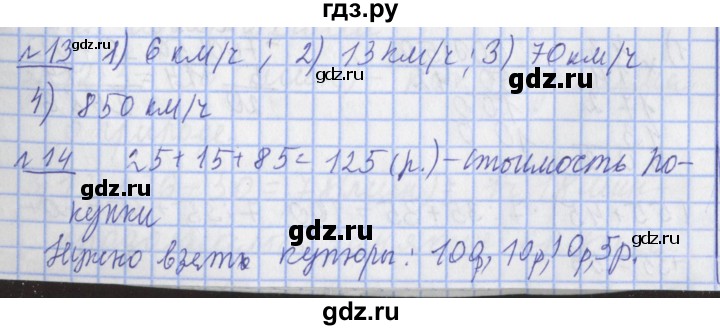 гдз.ру
№13 1) 6 км/ч ; 2) 13 км/ч ; 3) 70 км/ч
gdz.ru
gdz.ru
4) 850 км/ч
gdz.ru
№14 25+15+85=125(р.) - стоимость по-
gdz.ru
купки
gdz.ru
gdz.ru
Нужно взять купюры: 10р, 10р, 10р, 5р.
gdz.ru